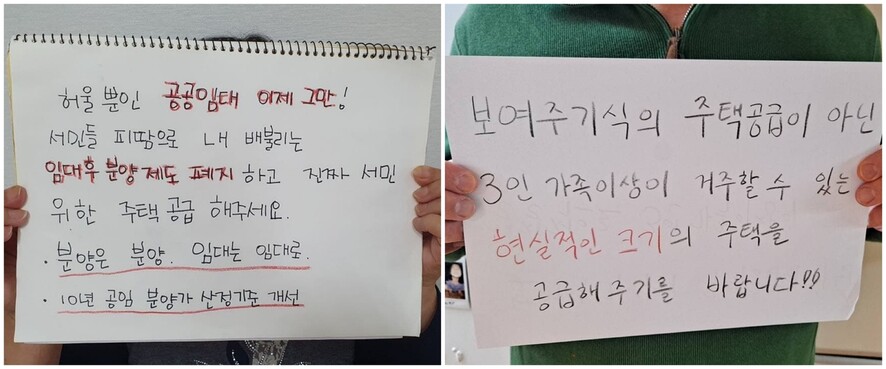 허울 뿐인 공공임대 이제 그만!
서민들 피땀으로 내 배불리는
임대후 분양 제도 폐지 하고 진짜 서민
위한 주택 공급 해주세요.
· 분양은 분양. 임대는 임대로.
· 10년 공임 분양가 산정기준 개선
보여주기식의 주택공급이 아닌
3인 가족이상이 거주할 수 있는
현실적인 크기의 주택을
공급해 주기를 바랍니다!!